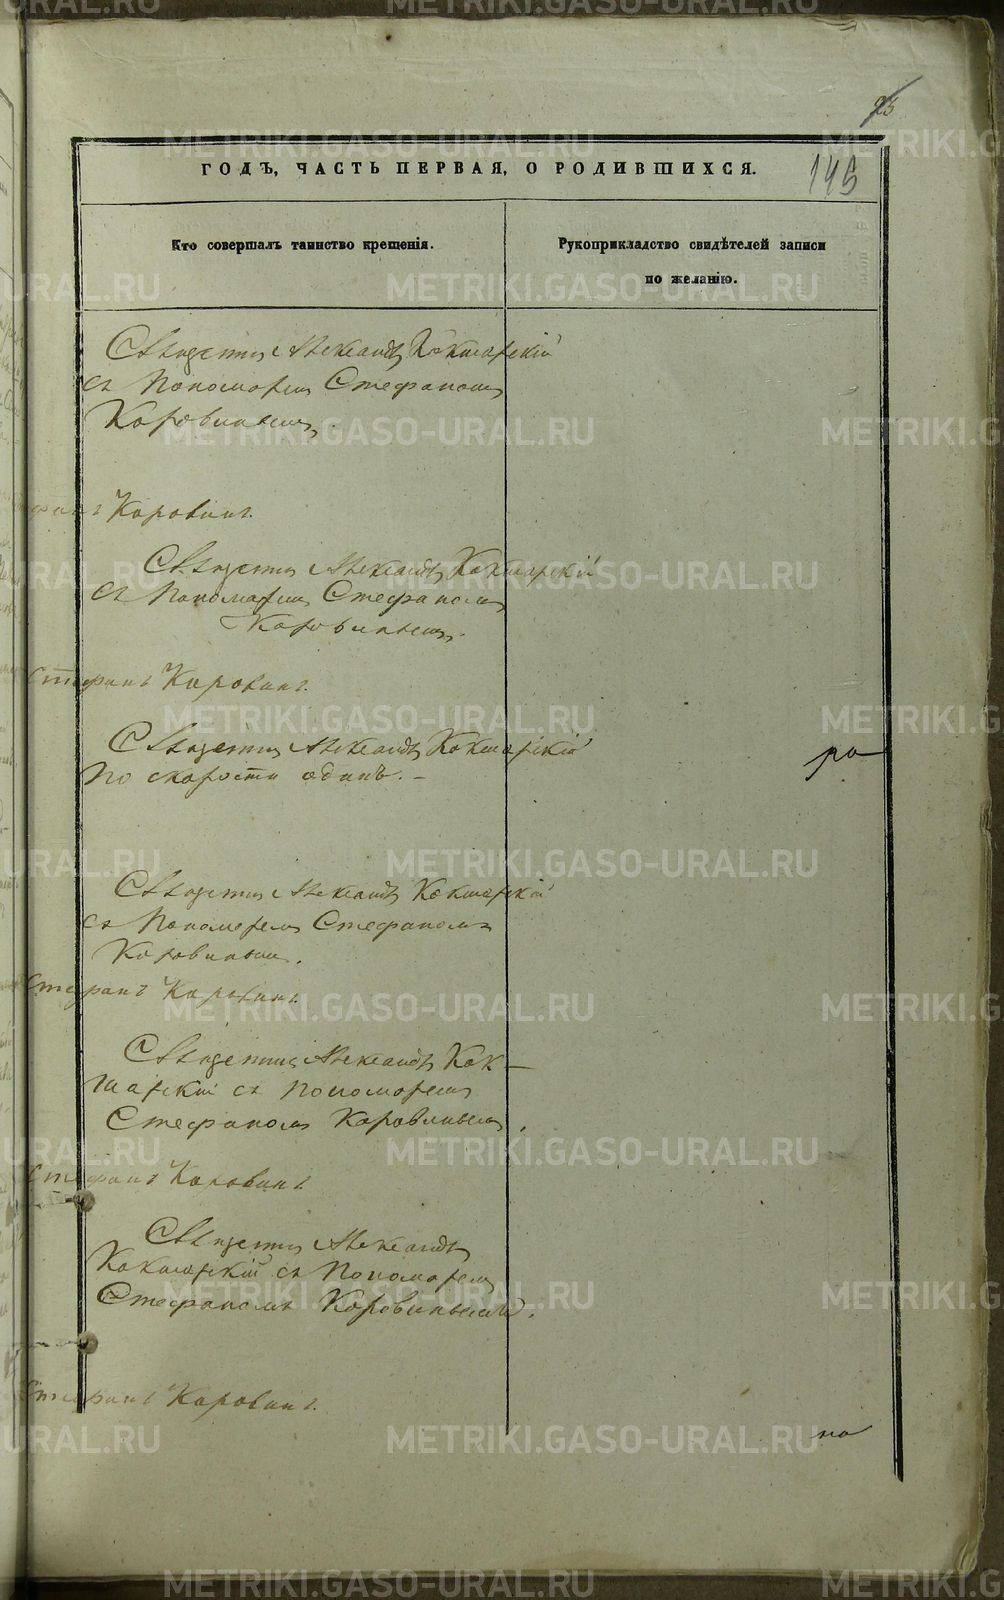 25
ГОДЪ, ЧАСТЬ ПЕРВАЯ, О РОДИВШИХСЯ.
145
Кто совершалъ таинство крещенія.
Рукоприкладство свидѣтелей записи
по желанію.
Александръ Кокшарскій
съ Пономаремъ Стефаномъ
Коровинымъ.
Коровинъ.
Александръ Кокшарскій
съ Пономаремъ Стефаномъ
Коровинымъ.
Стефанъ Коровинъ.
Александръ Кокшарскій
по скорости одинъ. –
Александръ Кокшарскій
съ Пономаремъ Стефаномъ
Коровинымъ.
Стефанъ Коровинъ.
Александръ Кок-
шарскій съ пономаремъ
Стефаномъ Коровинымъ.
Стефанъ Коровинъ.
Александръ
Кокшарскій съ Пономаремъ
Стефаномъ Коровинымъ.
Стефанъ Коровинъ.
METRIKI.GASO-URAL.RU